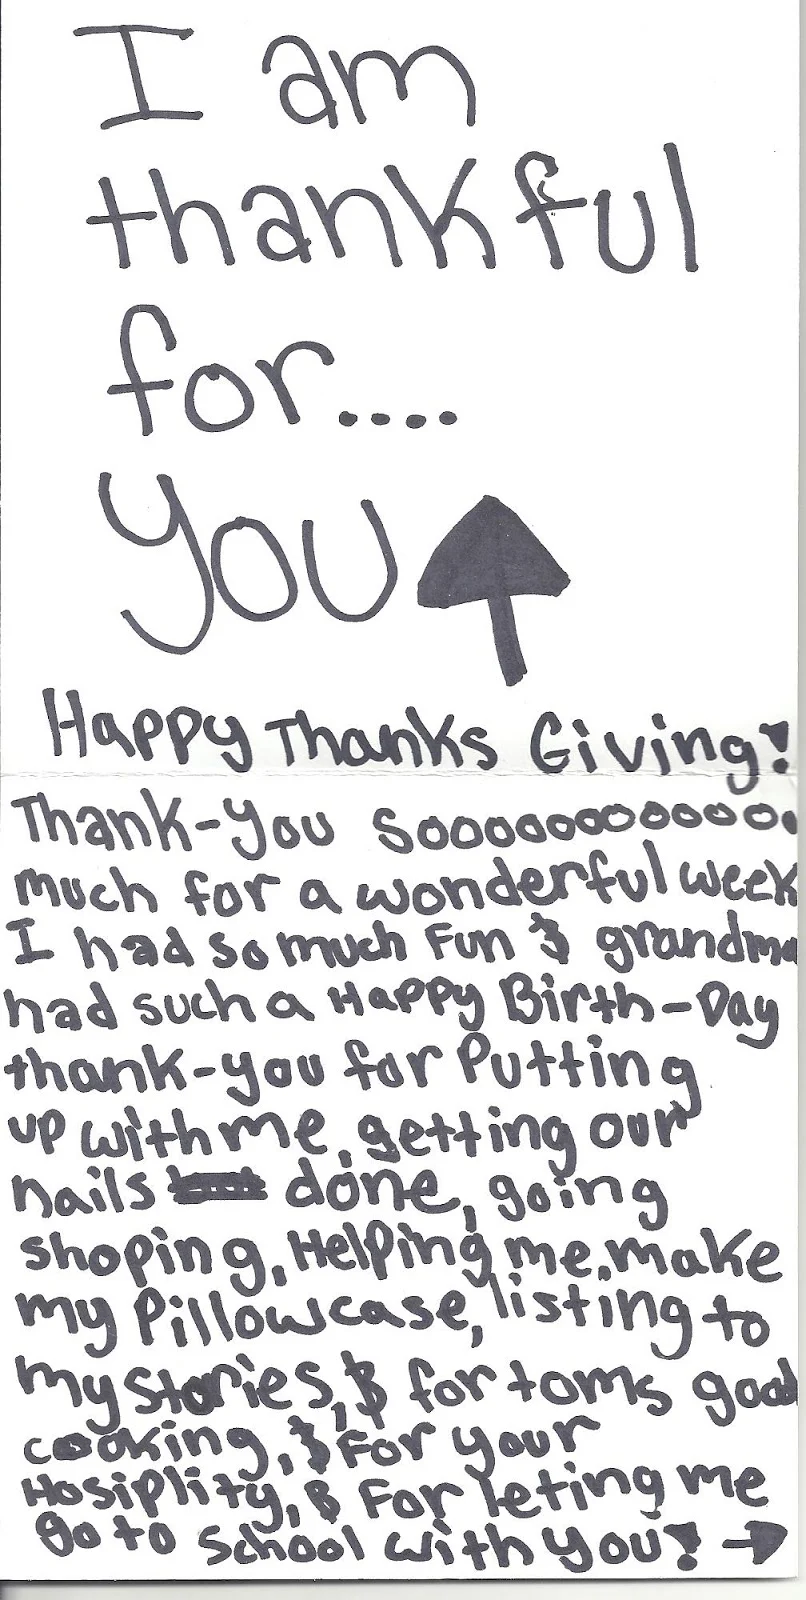 I am
thankful
for....
You
Happy Thanks Giving!
Thank-you Sooooooooooooo.
much for a wonderful week
I had so much Fun & grandma
had such a Happy Birth-Day
thank-you for Putting
up with me, getting our
nails done, going
shoping, Helping me, make
my Pillowcase, listing to
my stories, & for toms good
cooking, & For your
Hosiplity, & For leting me
go to School with you! →